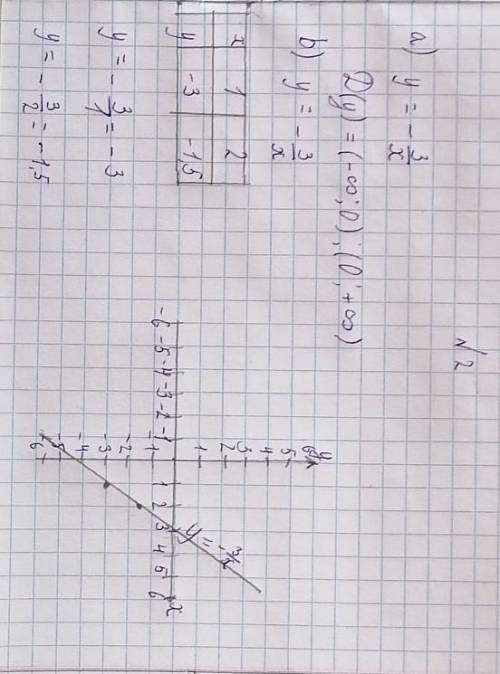 №2
a) y = -3/x
D(y) = (-∞; 0); (0; +∞)
b) y = -3/x
x 1 2
y -3 -1,5
y = -3/1 = -3
y = -3/2 = -1,5
y
6
5
4
3
2
1
-6 -5 -4 -3 -2 -1 1 2 3 4 5 6 x
-1
-2
-3
-4
-5
-6
y = -3/x